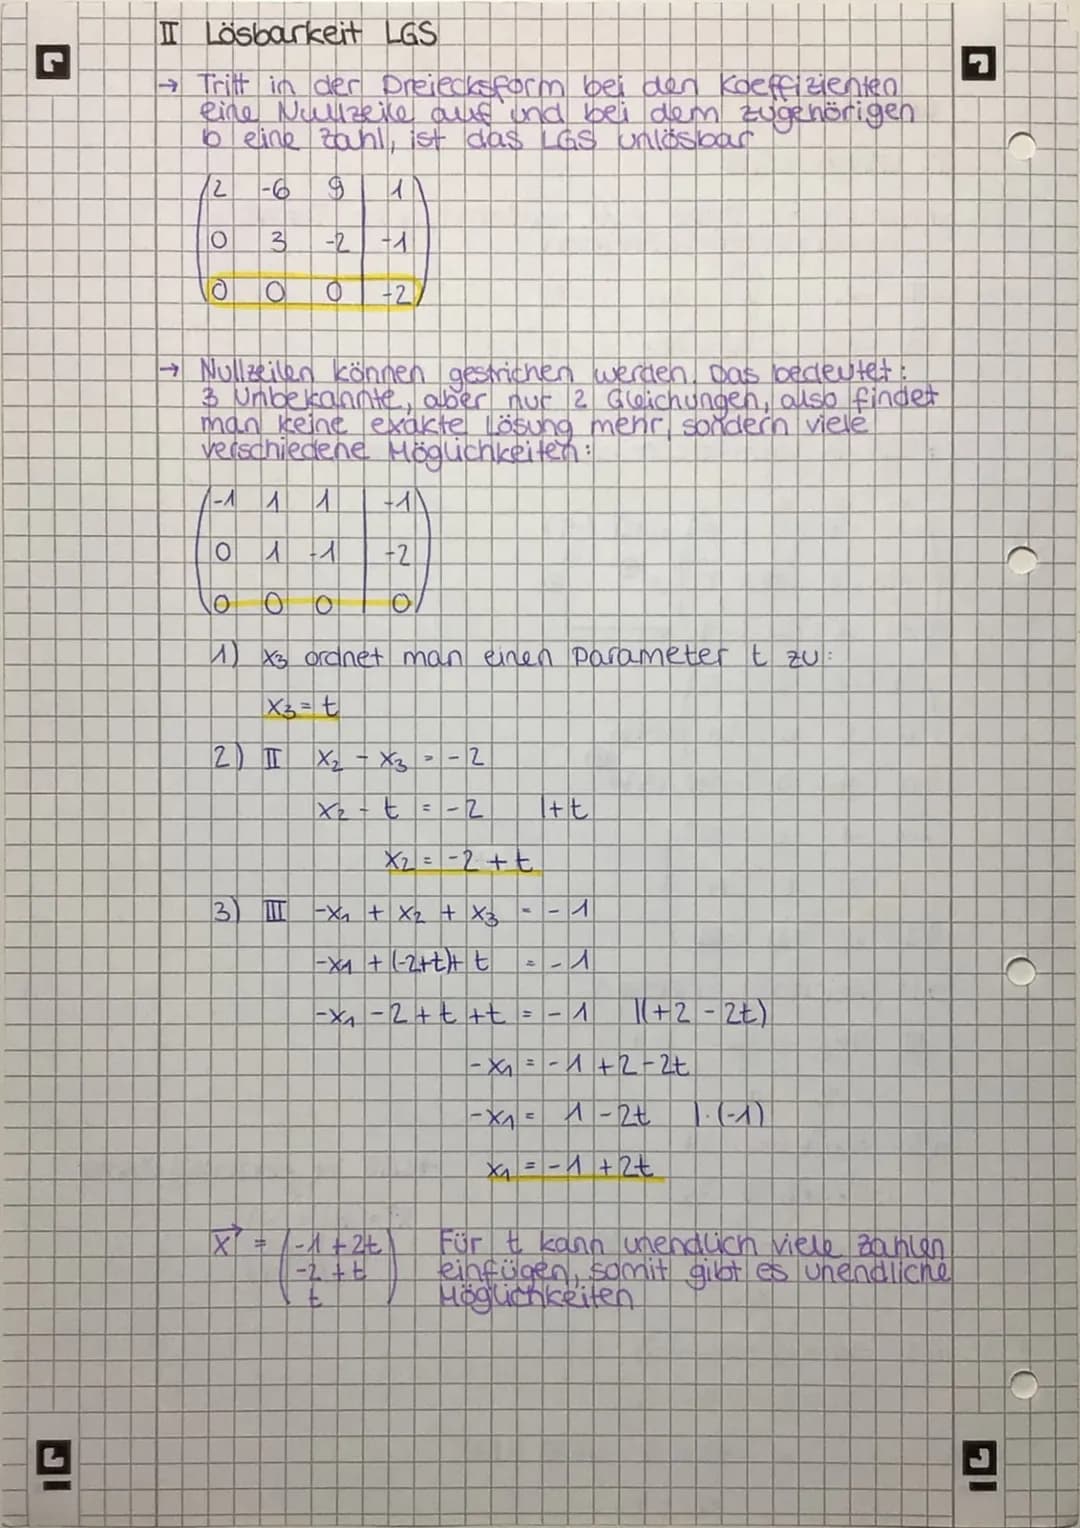 II Lösbarkeit LGS
→ Tritt in der Dreiecksform bei den Koeffizienten
eine Nullzeile auf und bei dem zugehörigen
b eine Zahl, ist das LGS unlösbar
2 -6 9 | 1
0 3 -2 | -1
0 0 0 | -2
→ Nullzeilen können gestrichen werden. Das bedeutet:
3 Unbekannte, aber nur 2 Gleichungen, also findet
man keine exakte Lösung mehr, sondern viele
verschiedene Möglichkeiten:
-1 1 1 | -1
0 1 -1 | -2
0 0 0 | 0
1) x₃ ordnet man einen Parameter t zu:
x₃ = t
2) II x₂ - x₃ = -2
x₂ - t = -2 |+t
x₂ = -2 + t
3) III -x₁ + x₂ + x₃ = -1
-x₁ + (-2+t)+ t = -1
-x₁ - 2 + t + t = -1 |(+2 - 2t)
-x₁ = -1 + 2 - 2t
-x₁ = 1 - 2t |·(-1)
x₁ = -1 + 2t
x⃗ = (-1 + 2t Für t kann unendlich viele Zahlen
-2 + t einfügen, somit gibt es unendliche
t) Möglichkeiten